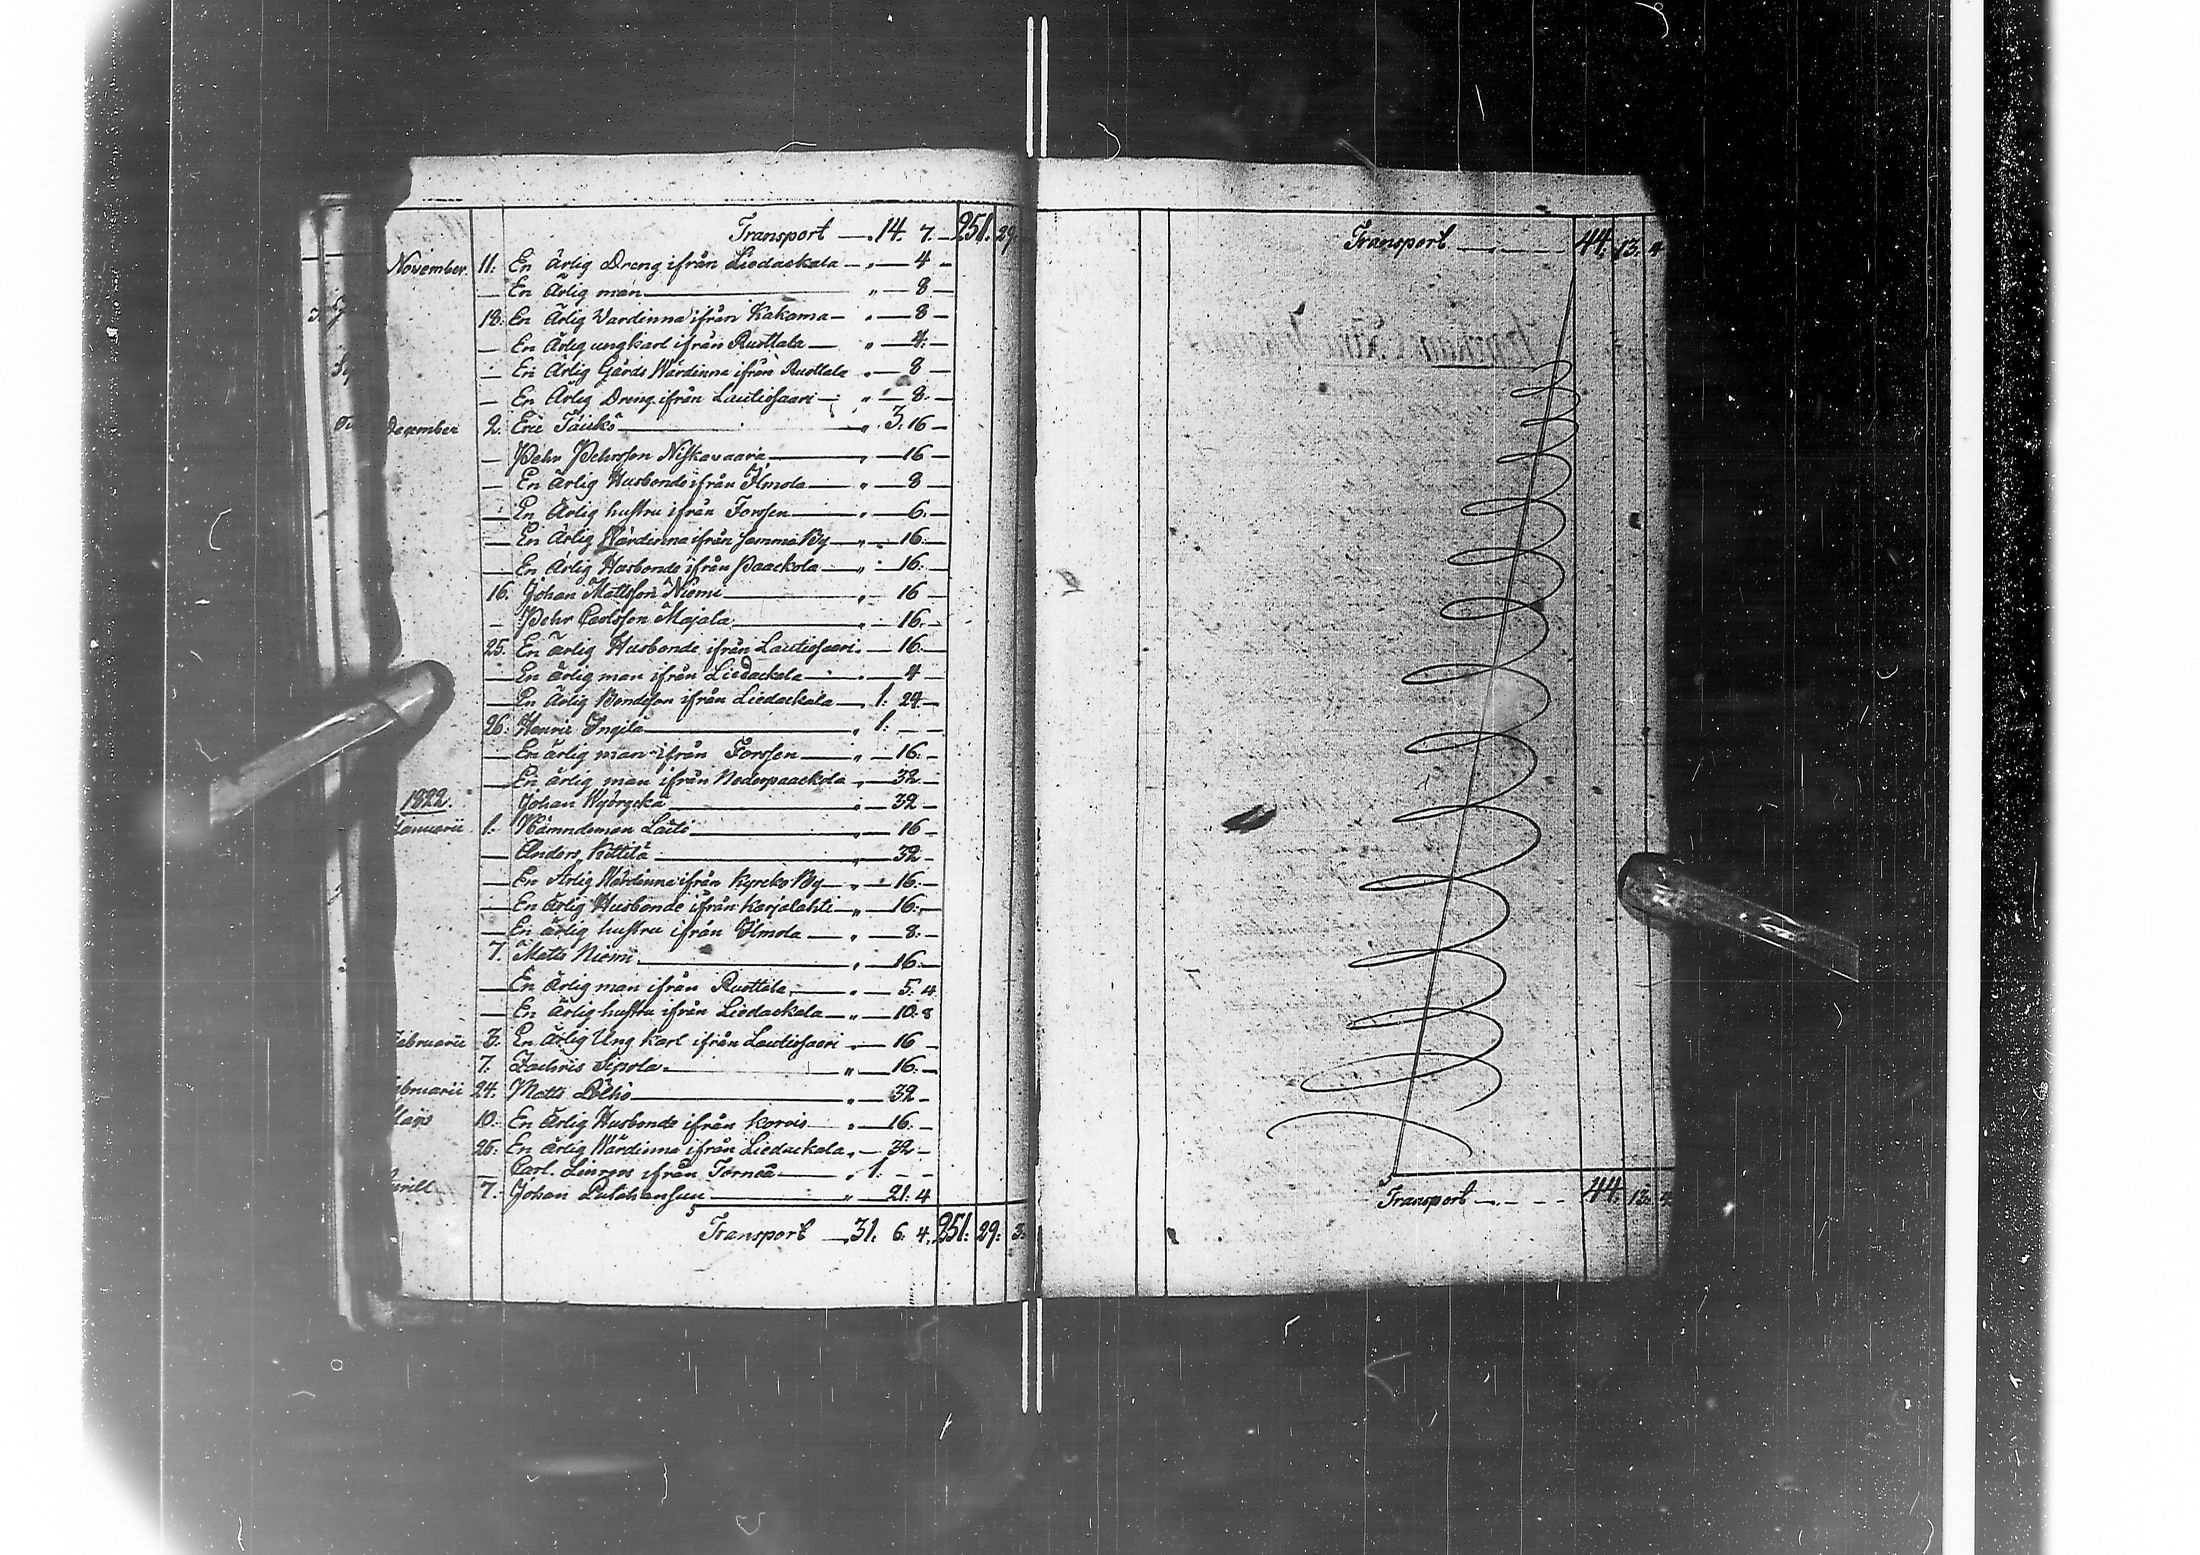 Transport — 14. 7. — 251. 29
November. 11. En ärlig Dreng ifrån Liedackala — „ — 4 —
— En ärlig man — „ — 8 —
18. En ärlig Vardinna ifrån Kakama — „ — 8 —
— En ärlig ungkarl ifrån Ruottala — „ — 4. —
— En ärlig Gårds Wärdinna ifrån Ruottala „ — 8 —
— En ärlig Dreng ifrån Lautiosaari — „ — 8. —
December 2. Eric — „ 3. 16 —
— Pehr Pehrsson Niskavaara — „ — 16 —
— En ärlig Husbonde ifrån Ilmola — „ — 8 —
— En ärlig hustru ifrån Forssen — „ — 6. —
— En ärlig Wärdinna ifrån samma By — „ — 16. —
— En ärlig Husbonde ifrån Paackola — „ — 16. —
16. Johan Mattsson Niemi — „ — 16 —
— Pehr Carlsson Majala — „ — 16. —
25. En ärlig Husbonde ifrån Lautiosaari. — 16. —
— En ärlig man ifrån Liedackala — „ — 4 —
— En ärlig Bondeson ifrån Liedackala — „ 1. 24. —
26. Henric Yngilä — „ 1. — —
— En ärlig man ifrån Forssen — „ — 16. —
— En ärlig man ifrån Nederpaackola „ — 32 —
1822. Johan — „ — 32 —
Januarii 1. Nämndeman — „ — 16 —
— Anders Kittilä — „ — 32 —
— En ärlig Wärdinna ifrån Kyrcko By — „ — 16. —
— En ärlig Husbonde ifrån Karjalahti — „ — 16. —
— En ärlig hustru ifrån Ilmola — „ — 8. —
7. Matts Niemi — „ — 16. —
— En ärlig man ifrån Ruottala — „ — 5. 4
— En ärlig hustru ifrån Liedackala — „ — 10. 8
Februarii 3. En ärlig Ung karl ifrån Lautiosaari „ — 16 —
7. Zachris Sipola — „ — 16. —
Februarii 24. Matts — „ — 32 —
10. En ärlig Husbonde ifrån Korois — „ — 16. —
25. En ärlig Wärdinna ifrån Liedackala „ — 32 —
— Carl ifrån Torneå — „ 1. — —
7. Johan — „ — 21. 4
Transport — 31. 6. 4. 251. 29. 3.
Transport — 44. 13. 4
Transport — 44. 13. 4